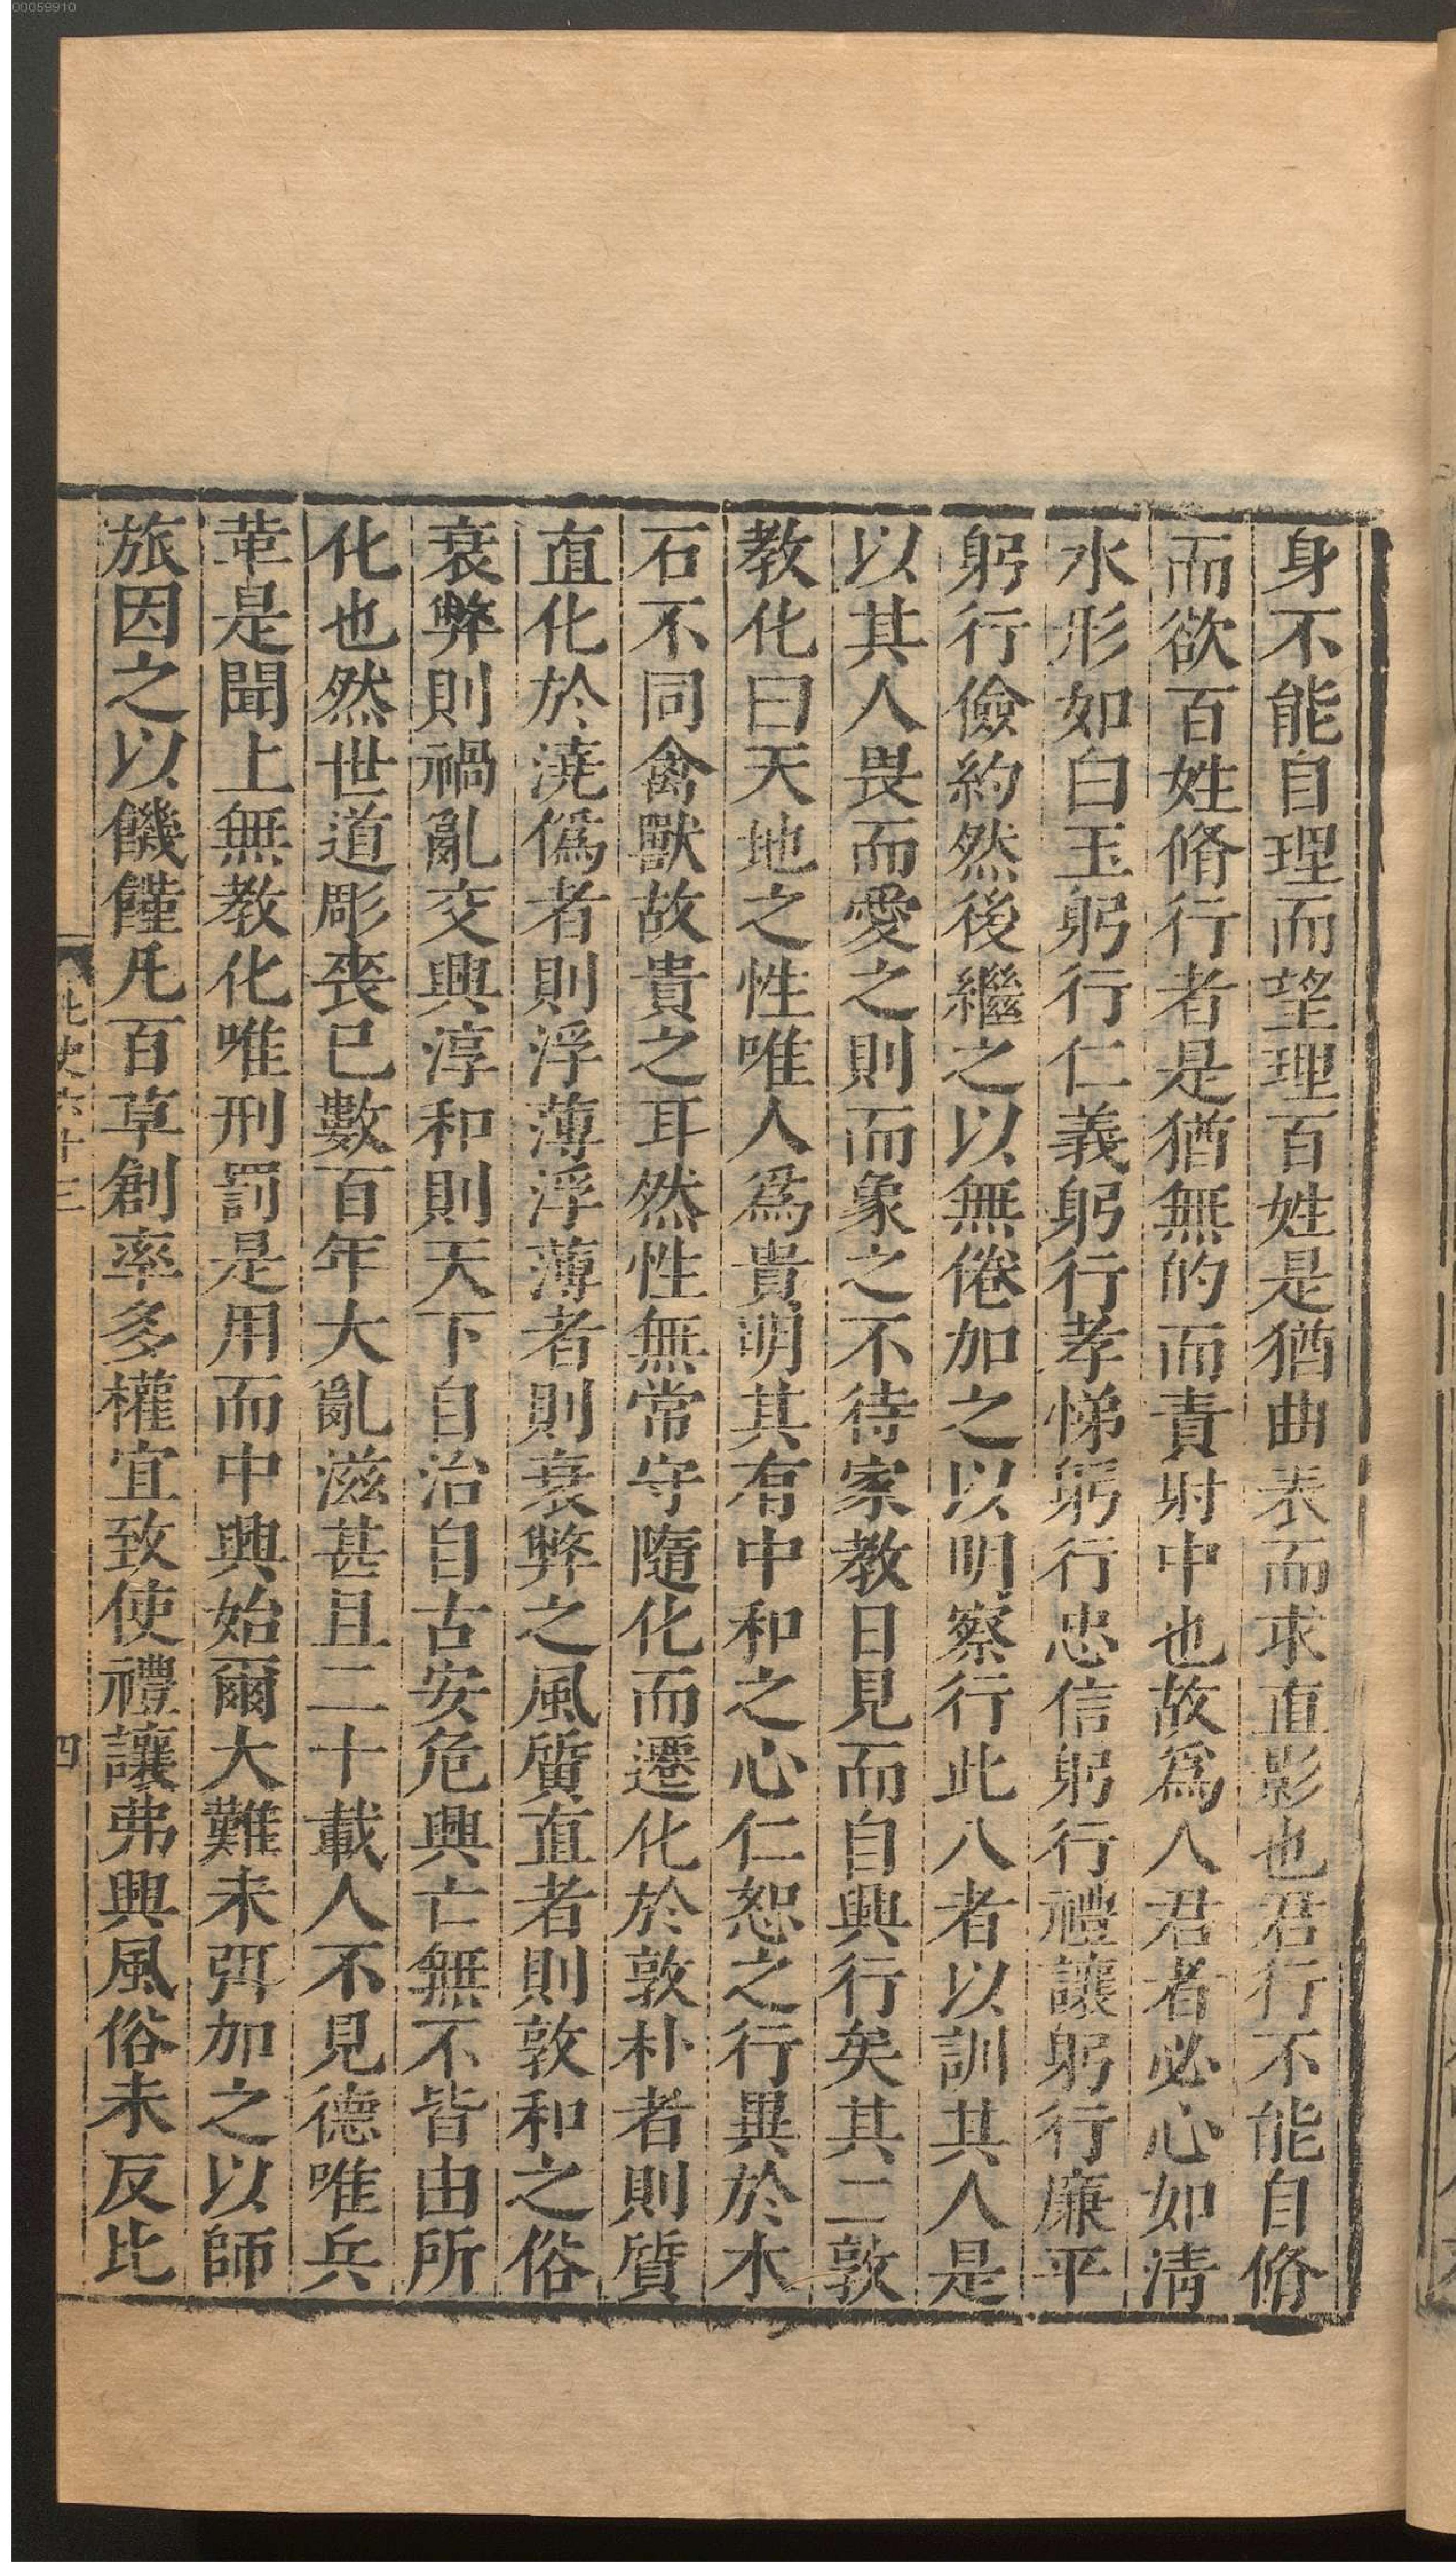 身不能自理而望理百姓是猶曲表而求直影也君行不能自脩
而欲百姓脩行者是猶無的而責射中也故爲人君者必心如清
水形如白玉躬行仁義躬行孝悌躬行忠信躬行禮讓躬行廉平
躬行儉約然後繼之以無倦加之以明察行此八者以訓其人是
以其人畏而愛之則而象之不待家教日見而自興行矣其二敦
教化曰天地之性唯人爲貴明其有中和之心仁恕之行異於木
石不同禽獸故貴之耳然性無常守隨化而遷化於敦朴者則質
直化於澆僞者則浮薄浮薄者則衰弊之風質直者則敦和之俗
衰弊則禍亂交興淳和則天下自治自古安危興亡無不皆由所
化也然世道彫喪已數百年大亂滋甚且二十載人不見德唯兵
革是聞上無教化唯刑罰是用而中興始爾大難未弭加之以師
旅因之以饑饉凡百草創率多權宜致使禮讓弗興風俗未反比
北史六十三
四
00059910